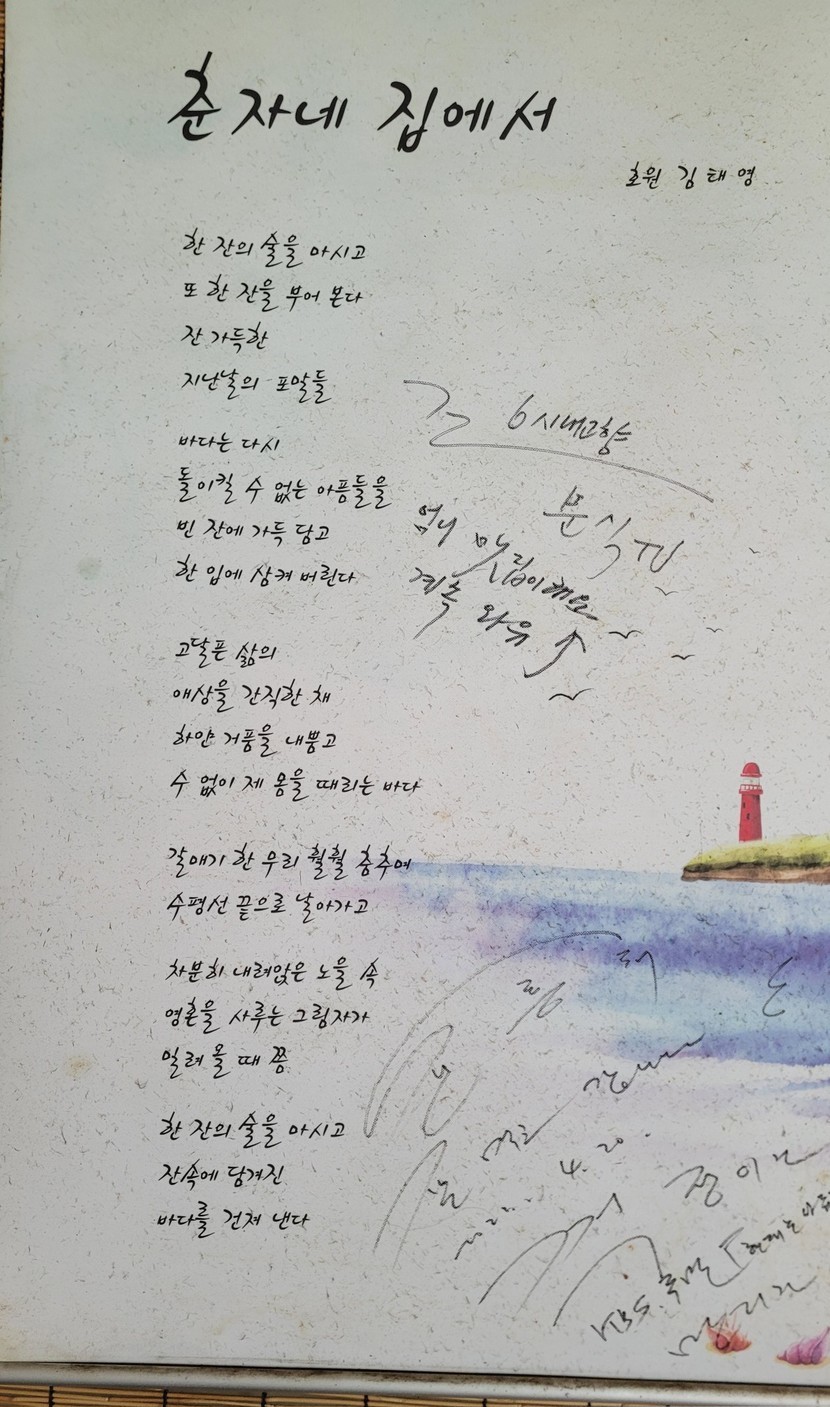 춘자네 집에서
호원 김태영
한 잔의 술을 마시고
또 한 잔을 부어 본다
잔 가득한
지난날의 포말들
바다는 다시
돌이킬 수 없는 아픔들을
빈 잔에 가득 담고
한 입에 삼켜 버린다
고달픈 삶의
애상을 간직한 채
하얀 거품을 내뿜고
수 없이 제 몸을 때리는 바다
갈매기 한 무리 훨훨 춤추며
수평선 끝으로 날아가고
차분히 내려앉은 노을 속
영혼을 사루는 그림자가
밀려 올 때 쯤
한 잔의 술을 마시고
잔속에 담겨진
바다를 건져 낸다
6시내고향
분식
계속 와유
4.20.
KBS